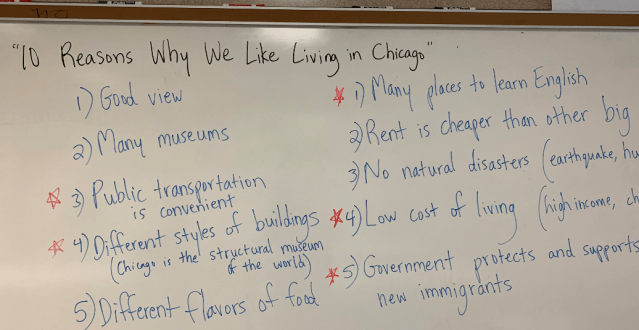 "10 Reasons Why We Like Living in Chicago"
1) Good view
2) Many museums
3) Public transportation
is convenient
4) Different styles of buildings
(Chicago is the structural museum
of the world)
5) Different flavors of food
1) Many places to learn English
2) Rent is cheaper than other big
3) No natural disasters (earthquake, hu
4) Low cost of living (high income, ch
5) Government protects and supports
new immigrants